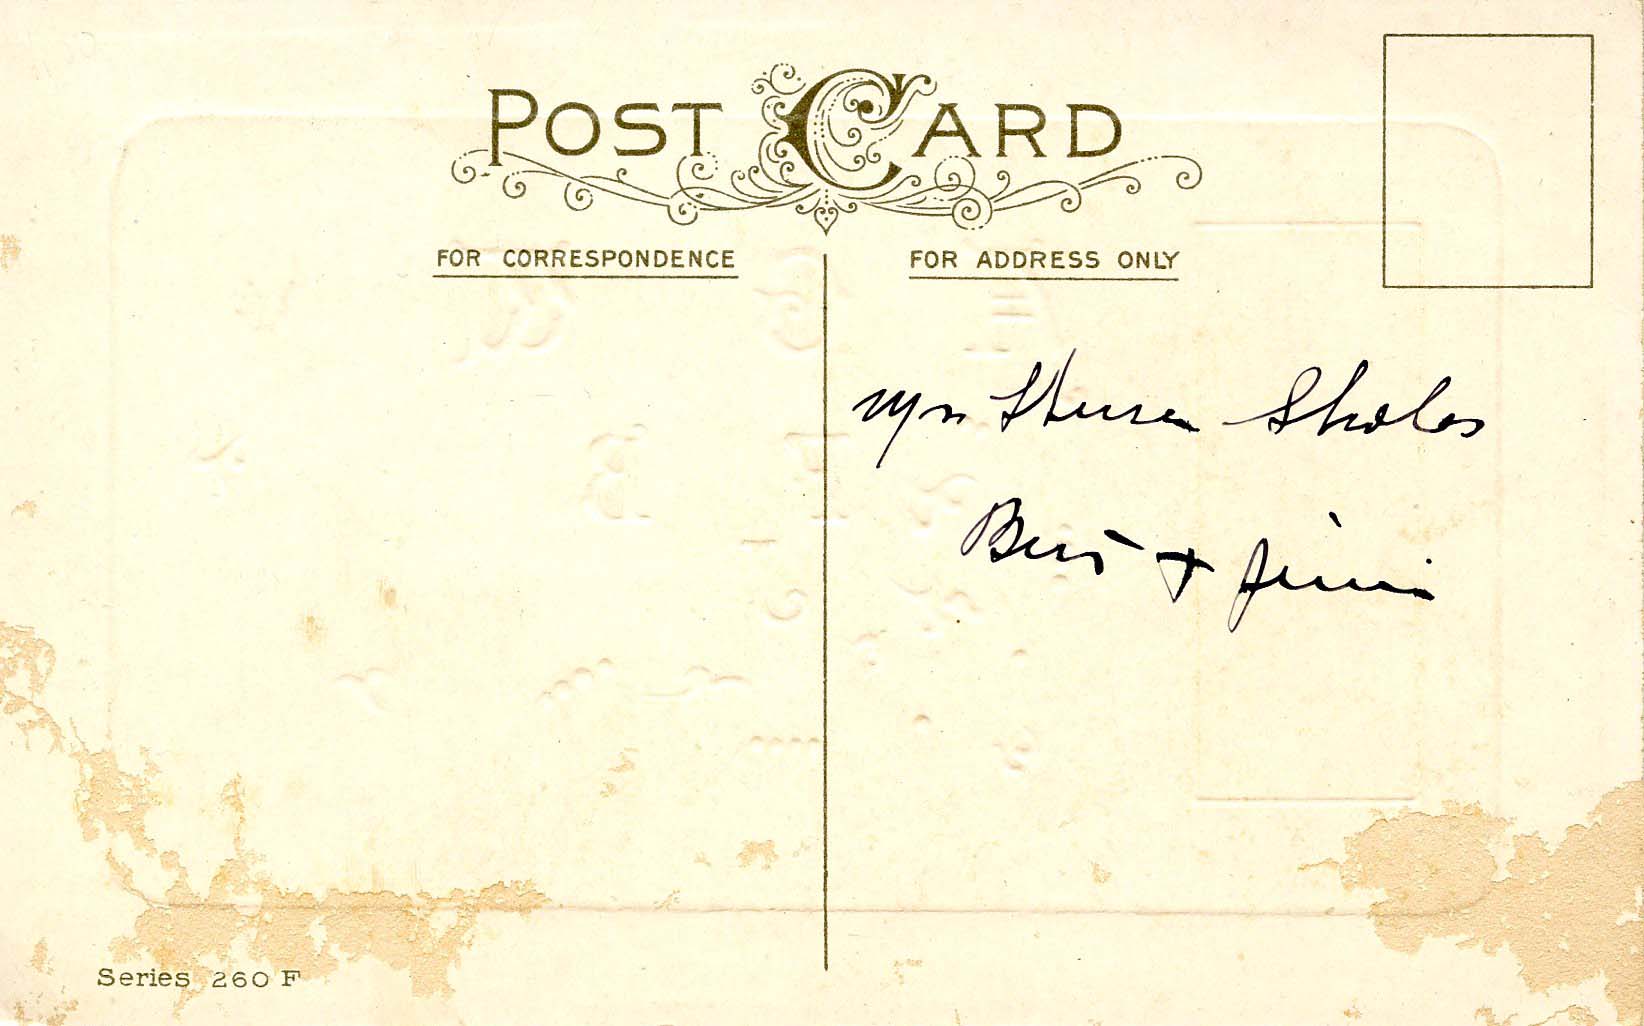 POST CARD
FOR CORRESPONDENCE
FOR ADDRESS ONLY
Sholes
Bert + Jimi
Series 260 F